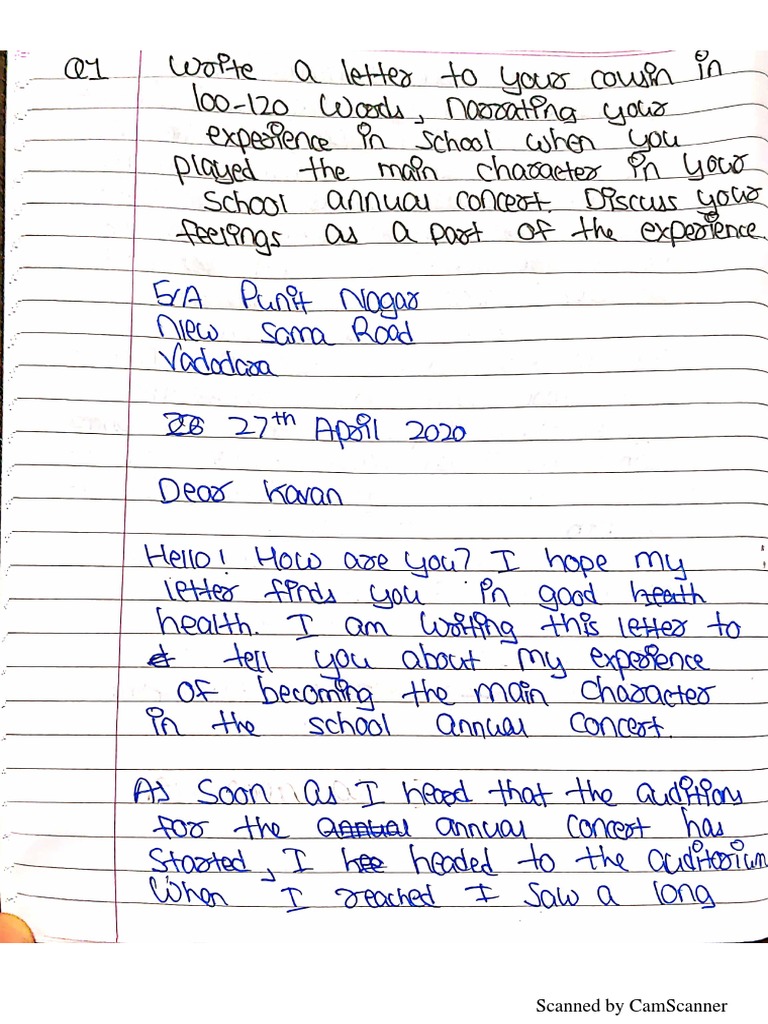 Q1 Write a letter to your cousin in
100-120 words, narrating your
experience in school when you
played the main character in your
school annual concert. Discuss your
feelings as a part of the experience.
5/A Punit Nagar
New Sama Road
Vadodara
27th April 2020
Dear Kavan
Hello! How are you? I hope my
letter finds you in good
health. I am writing this letter to
tell you about my experience
of becoming the main character
in the school annual concert.
As soon as I heared that the auditions
for the annual annual concert has
started, I headed to the auditorium
When I reached I saw a long
Scanned by CamScanner